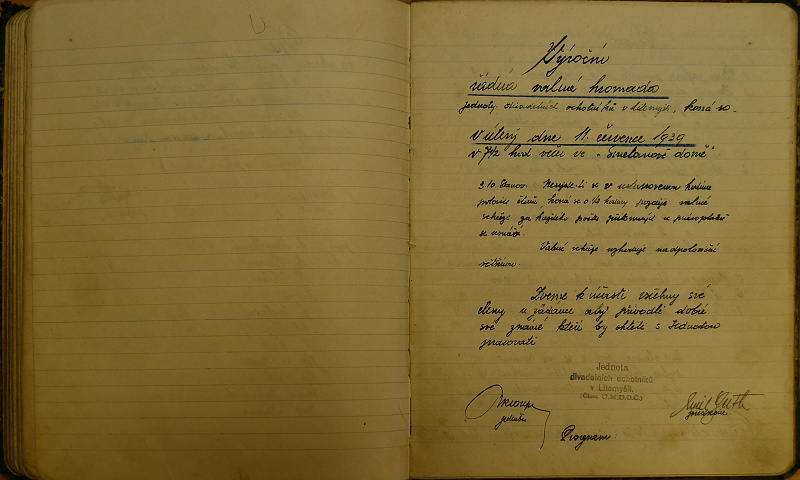 Výroční
řádná valná hromada
jednoty divadelních ochotníků v Litomyšli, koná se
v úterý dne 11. července 1939
v 7 1/2 hod več. ve "Smetanově domě"
§ 10 Stanov. Nesejde-li se v ustanovenou hodinu
potřebné, koná se o 1/2 hodiny později valná
schůze za každého počtu přítomných a
se usnáší.
Valná schůze nadpoloviční
většinou.
Zveme k účasti všechny své
členy a žádáme aby přivedli dobré
své známé kteří by chtěli s Jednotou
pracovati
Jednota
divadelních ochotníků
v Litomyšli.
(Člen Ú.M.D.O.Č.)
jednatel
Program: